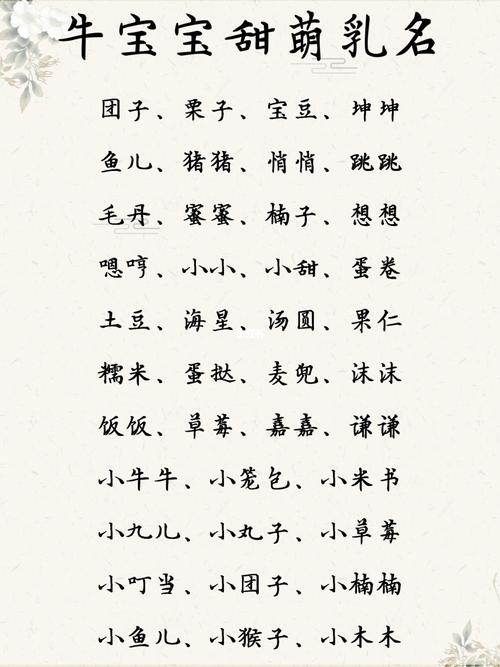 牛宝宝甜萌乳名
团子、栗子、宝豆、坤坤
鱼儿、猪猪、悄悄、跳跳
毛丹、蜜蜜、楠子、想想
嗯哼、小小、小甜、蛋卷
土豆、海星、汤圆、果仁
糯米、蛋挞、麦兜、沫沫
饭饭、草莓、嘉嘉、谦谦
小牛牛、小笼包、小米书
小九儿、小丸子、小草莓
小叮当、小团子、小楠楠
小鱼儿、小猴子、小木木